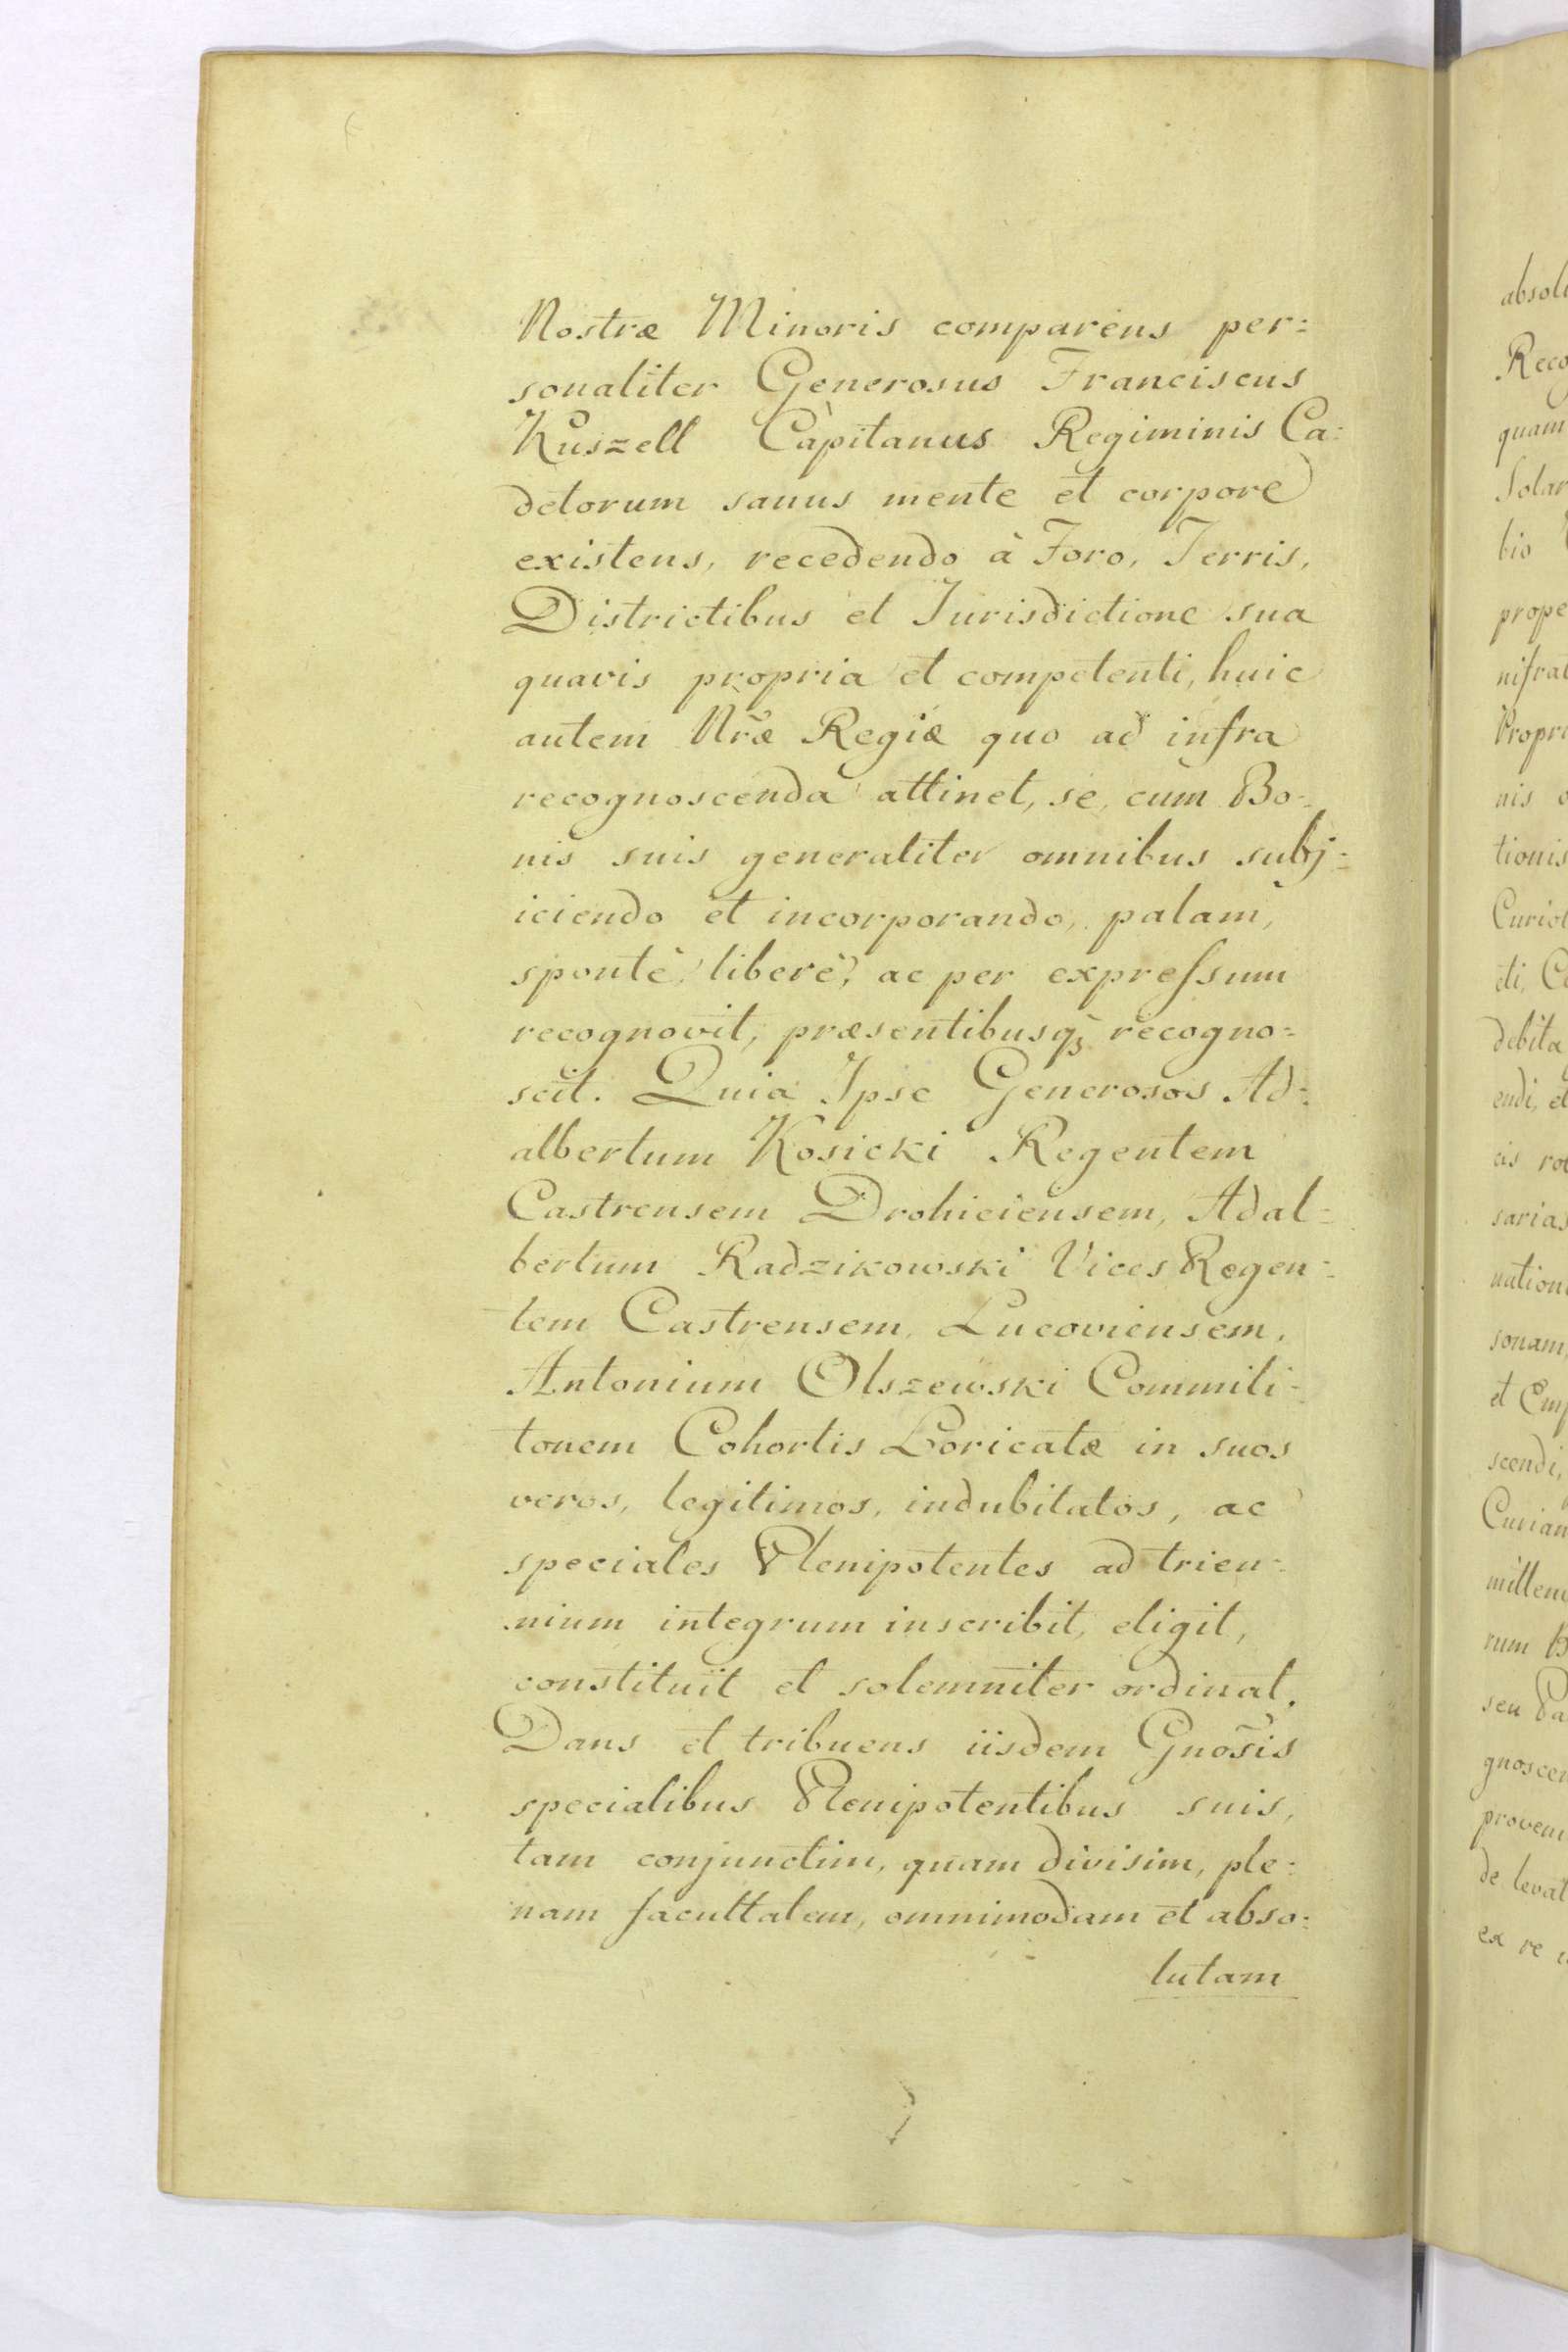 Nostræ Minoris comparens per=
sonaliter Generosus Franciscus
Kuszell Càpitanus Regiminis Ca=
detorum sanus mente et corpore
existens, recedendo à Foro, Terris,
Districtibus et Jurisdictione sua
quavis propria et competenti, huic
autem Nr̃æ Regiæ quo ad infra
recognoscenda attinet, se, cum Bo=
nis suis generaliter omnibus subj=
iciendo et incorporando, palam,
spontè, liberè, ac per expreſsum
recognovit, præsentibusqꝫ recogno=
scit. Quia Ipse Generosos Ad=
albertum Kosicki Regentem
Castrensem Drohiciensem, Adal=
bertum Radzikowski Vices Regen=
tem Castrensem Lucoviensem,
Antonium Olszewski Commili=
tonem Cohortis Loricatæ in suos
veros, legitimos, indubitatos, ac
speciales Plenipotentes ad trien=
nium integrum inscribit, eligit,
constituit et solemniter ordinat.
Dans et tribuens iisdem Gnos̃is
specialibus Plenipotentibus suis,
tam conjunctim, quam divisim, ple=
nam facultatem, omnimodam et abso=
lutam
absol
Reco
quam
Solar
bio
prope
nisrat
Propri
nis
tionis
Curiol
eti, C
debita
endi, et
cis ro
sarias
nation
sonam,
et Emp
scendi,
Curian
millen
rum B
seu Pa
gnoscen
proveni
de levat
ex re